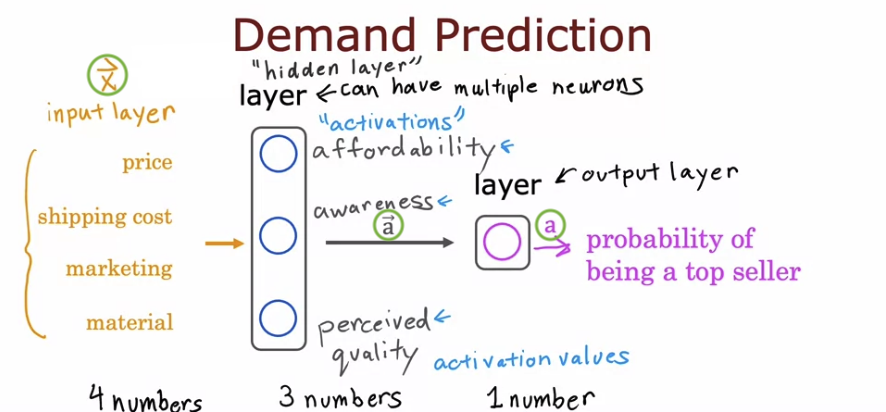 Demand Prediction
x⃗
input layer
price
shipping cost
marketing
material
4 numbers
"hidden layer"
layer ← can have multiple neurons
"activations"
affordability ←
awareness ←
a⃗
perceived ←
quality
activation values
3 numbers
layer ← output layer
a
probability of
being a top seller
1 number